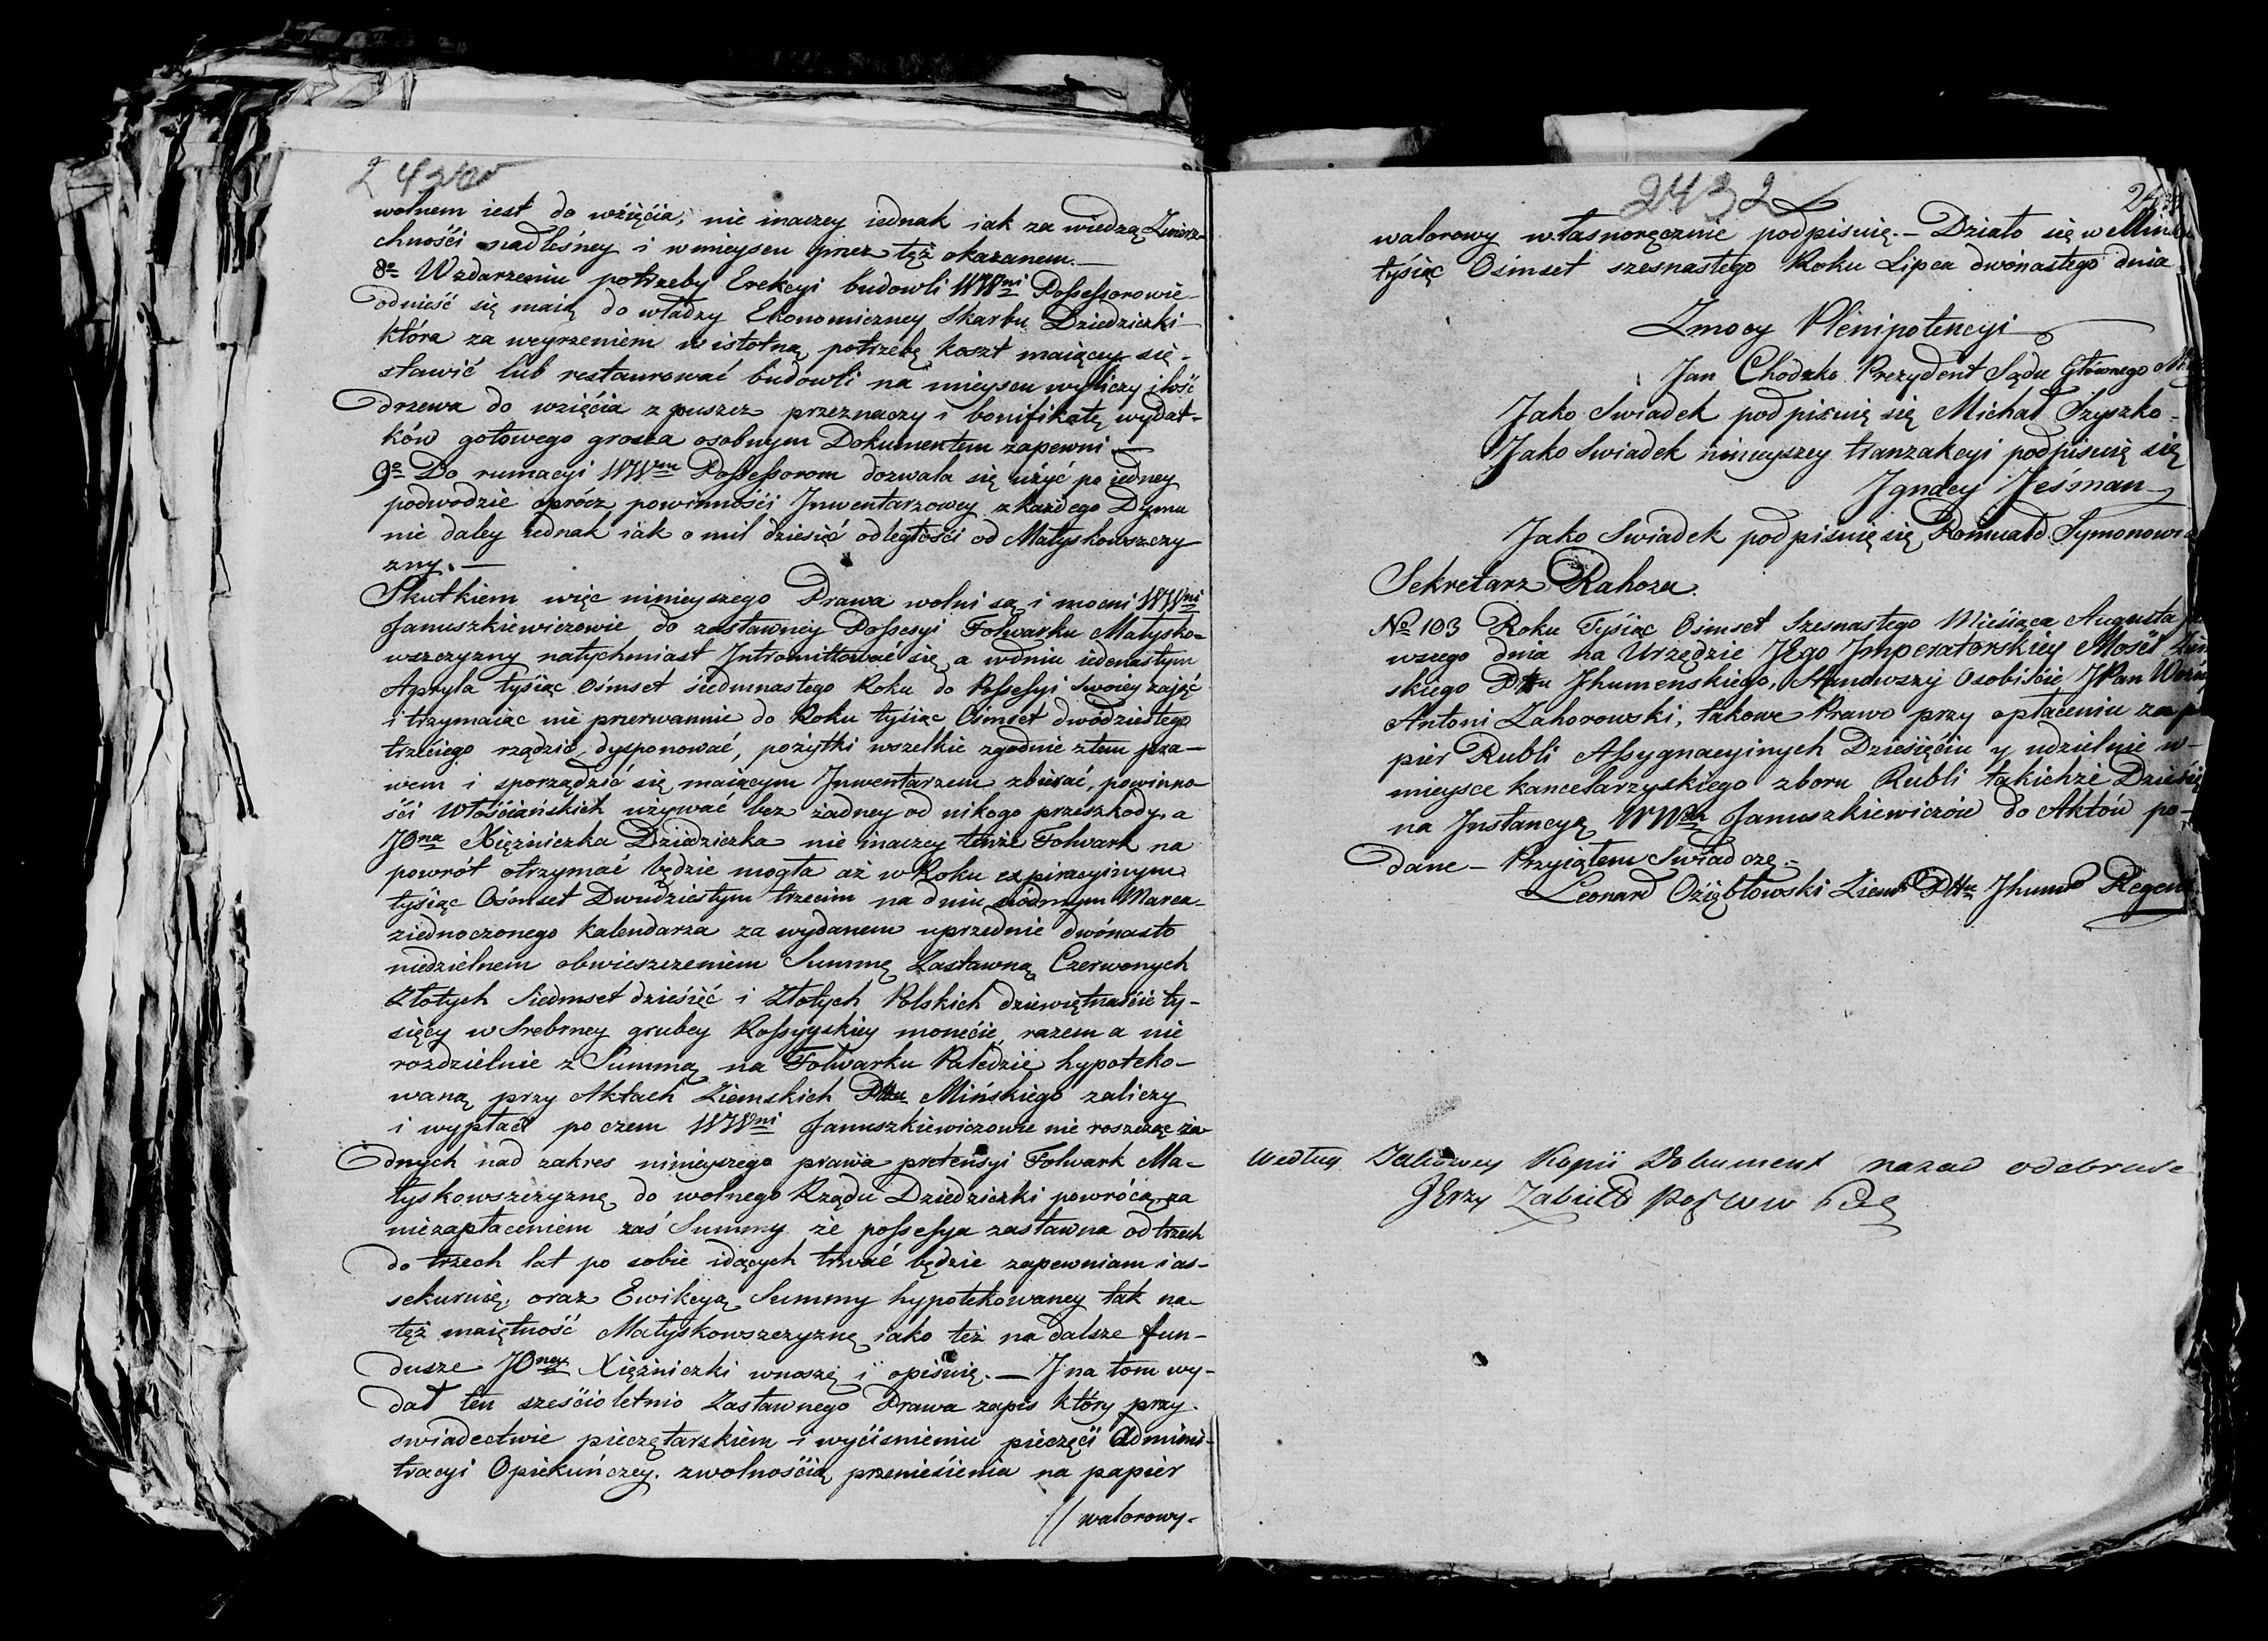 wolnem iest do wzięcia, nie inaczey iednak iak za wiedzą Zwierz-
chności nadleśney i wmieyscu przez tęż okazanem.—
8º Wzdarzeniu potrzeby Erekcyi budowli WWni Possessorowie
odnieść się maią do władzy Ekonomiczney Skarbu Dziedziczki
która za weyrzeniem w istotną potrzebę koszt maiącey się
stawić lub restaurować budowli na mieyscu wyliczy ilość
drzewa do wzięcia z puszcz przeznaczy i bonifikatę wydat-
ków gotowego grosza osobnym Dokumentem zapewni —
9º Do rumacyi WWm Possessorom dozwala się użyć po iedney
podwodzie oprócz powinności Inwentarzowey z każdego Dymu
nie daley iednak iak o mil dziesięć odległości od Matyskowszczy
zny. —
Skutkiem więc ninieyszego Prawa wolni są i mocni WWni
Januszkiewiczowie do zastawney Possesyi Folwarku Matysko-
wszczyzny natychmiast Intromittować się, a wdniu iedenastym
Apryla tysiąc Ośmset siedmnastego Roku do Possessyi swoiey zaiąć
i trzymaiąc nie przerwannie do Roku tysiąc Ośmset dwódziestego
trzeciego rządzić, dysponować, pożytki wszelkie zgodnie z tem pra-
wem i sporządzić się maiącym Inwentarzem zbierać, powinno-
ści Włościańskich używać bez żadney od nikogo przeszkody, a
JOna Xiężniczka Dziedziczka nie inaczey tenże Folwark na
powrót otrzymać będzie mogła aż w Roku expiracyinym
tysiąc Ośmset Dwudziestym trzecim na dniu siódmym Marca
ziednoczonego kalendarza za wydanem uprzednie dwónasto
niedzielnem obwieszczeniem Summę Zastawną Czerwonych
Złotych Siedmset dziesięć i Złotych Polskich dziewiętnaście ty-
sięcy w Srebrney grubey Rossyyskiey monecie, razem a nie
rozdzielnie z Summą na Folwarku hypoteko-
waną przy Aktach Ziemskich Pttu Mińskiego zaliczy
i wypłaci po czem WWni Januszkiewiczowie nie roszcząc ża-
dnych nad zakres ninieyszego prawa pretensyi Folwark Ma-
tyskowszczyznę do wolnego Rządu Dziedziczki powrócą, za
niezapłaceniem zaś Summy że possessya zastawna od trzech
do trzech lat po sobie idących trwać będzie zapewniam i as-
sekuruię, oraz Ewikcyą Summy hypotekowaney tak na
też maiętność Matyskowszczyznę iako też na dalsze fun-
dusze JOney Xiężniczki wnoszę i opisuię. — I na tom wy-
dał ten sześcioletnio Zastawnego Prawa zapis który przy
swiadectwie pieczętarskiem i wyciśnieniu pieczęci Admini-
tracyi Opiekuńczey, zwolnością przeniesienia na papier
// walorowy.
2432
walorowy własnoręcznie podpisuię. — Działo się w
tysiąc Ośmset szesnastego Roku Lipca dwónastego dnia
Zmocy Plenipotencyi
Jan Chodzko Prezydent Sądu Głównego
Jako Swiadek podpisuię się Michał Szyszko
Jako Swiadek ninieyszey tranzakcyi podpisuię się
Ignacy Jeśman
Jako Swiadek podpisuię się Romuald
Sekretarz Rahoza.
Nº 103 Roku Tysiąc Ośmset Szesnastego Miesiąca Augusta
wszego dnia na Urzędzie JEgo Imperatorskiey Mości
skiego Pttu Jhumenskiego, Stanowszy Osobiście JPan
Antoni Zahorowski, takowe Prawo przy opłaceniu za
pier Rubli Assygnacyinych Dziesięciu y udzielnie w-
mieysce kancelaryskiego zboru Rubli takichże
na Instancyą WWch Januszkiewiczów do Aktów po-
dane — Przyiąłem Swiadczę.—
Leonard Oziębłowski Ziem Pttu Jhum Regent
Według Kopii Dokument nazad odebrałem
JErzy